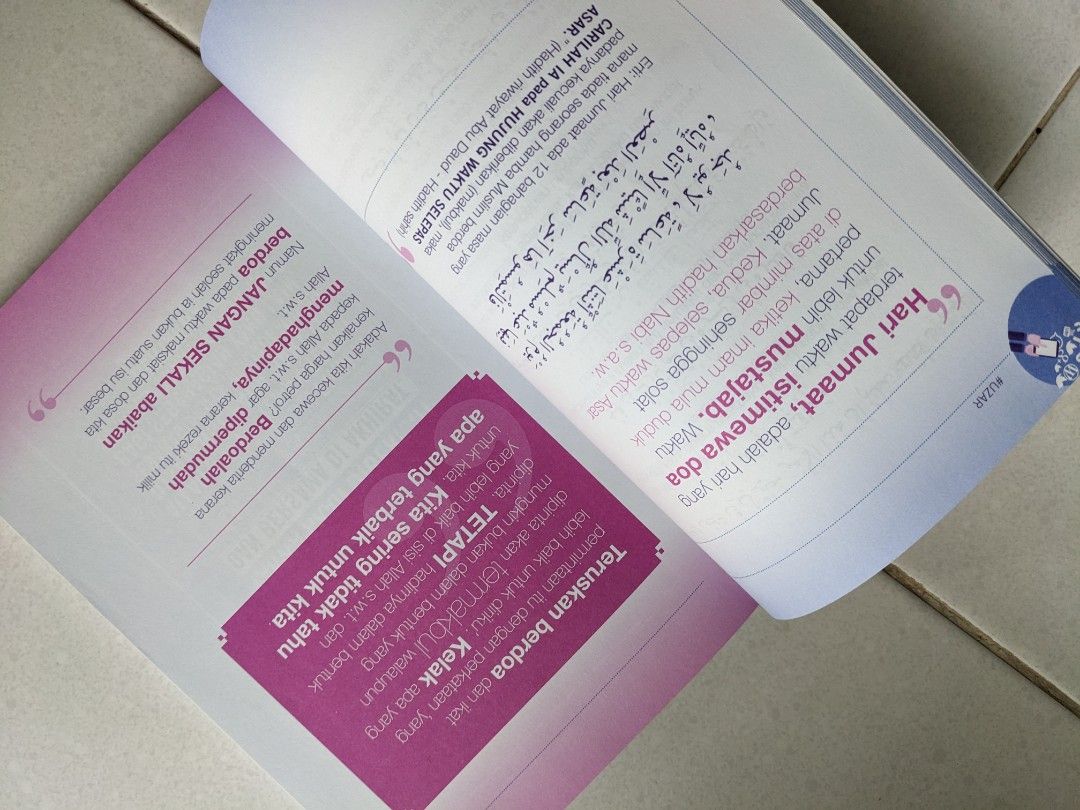 #UZAR
Hari Jumaat, adalah hari yang
terdapat waktu istimewa doa
untuk lebih mustajab. Waktu
pertama, ketika imam mula duduk
di atas mimbar sehingga solat
Jumaat. Kedua, selepas waktu Asar
berdasarkan hadith Nabi s.a.w.
يَوْمُ الْجُمُعَةِ اثْنَتَا عَشْرَةَ سَاعَةً ، لَا يُوجَدُ
فِيهَا عَبْدٌ مُسْلِمٌ يَسْأَلُ اللَّهَ شَيْئًا إِلَّا آتَاهُ إِيَّاهُ ،
فَالْتَمِسُوهَا آخِرَ سَاعَةٍ بَعْدَ الْعَصْرِ
Erti: Hari Jumaat ada 12 bahagian masa yang
mana tiada seorang hamba Muslim berdoa
padanya kecuali akan diberikan (makbul), maka
CARILAH IA pada HUJUNG WAKTU SELEPAS
ASAR." (Hadith riwayat Abu Daud - Hadith sahih)
Teruskan berdoa dan ikat
permintaan itu dengan perkataan 'yang
lebih baik untuk diriku'. Kelak apa yang
dipinta akan termakbul walaupun
mungkin bukan dalam bentuk yang
dipinta, TETAPI hadirnya dalam bentuk
yang lebih baik di sisi Allah s.w.t. dan
untuk kita. Kita sering tidak tahu
apa yang terbaik untuk kita.
Adakah kita kecewa dan menderita kerana
kenaikan harga petrol? Berdoalah
kepada Allah s.w.t. agar dipermudah
menghadapinya, kerana rezeki itu milik
Allah s.w.t.
Namun JANGAN SEKALI abaikan
berdoa pada waktu maksiat dan dosa kita
meningkat seolah ia bukan suatu isu besar.